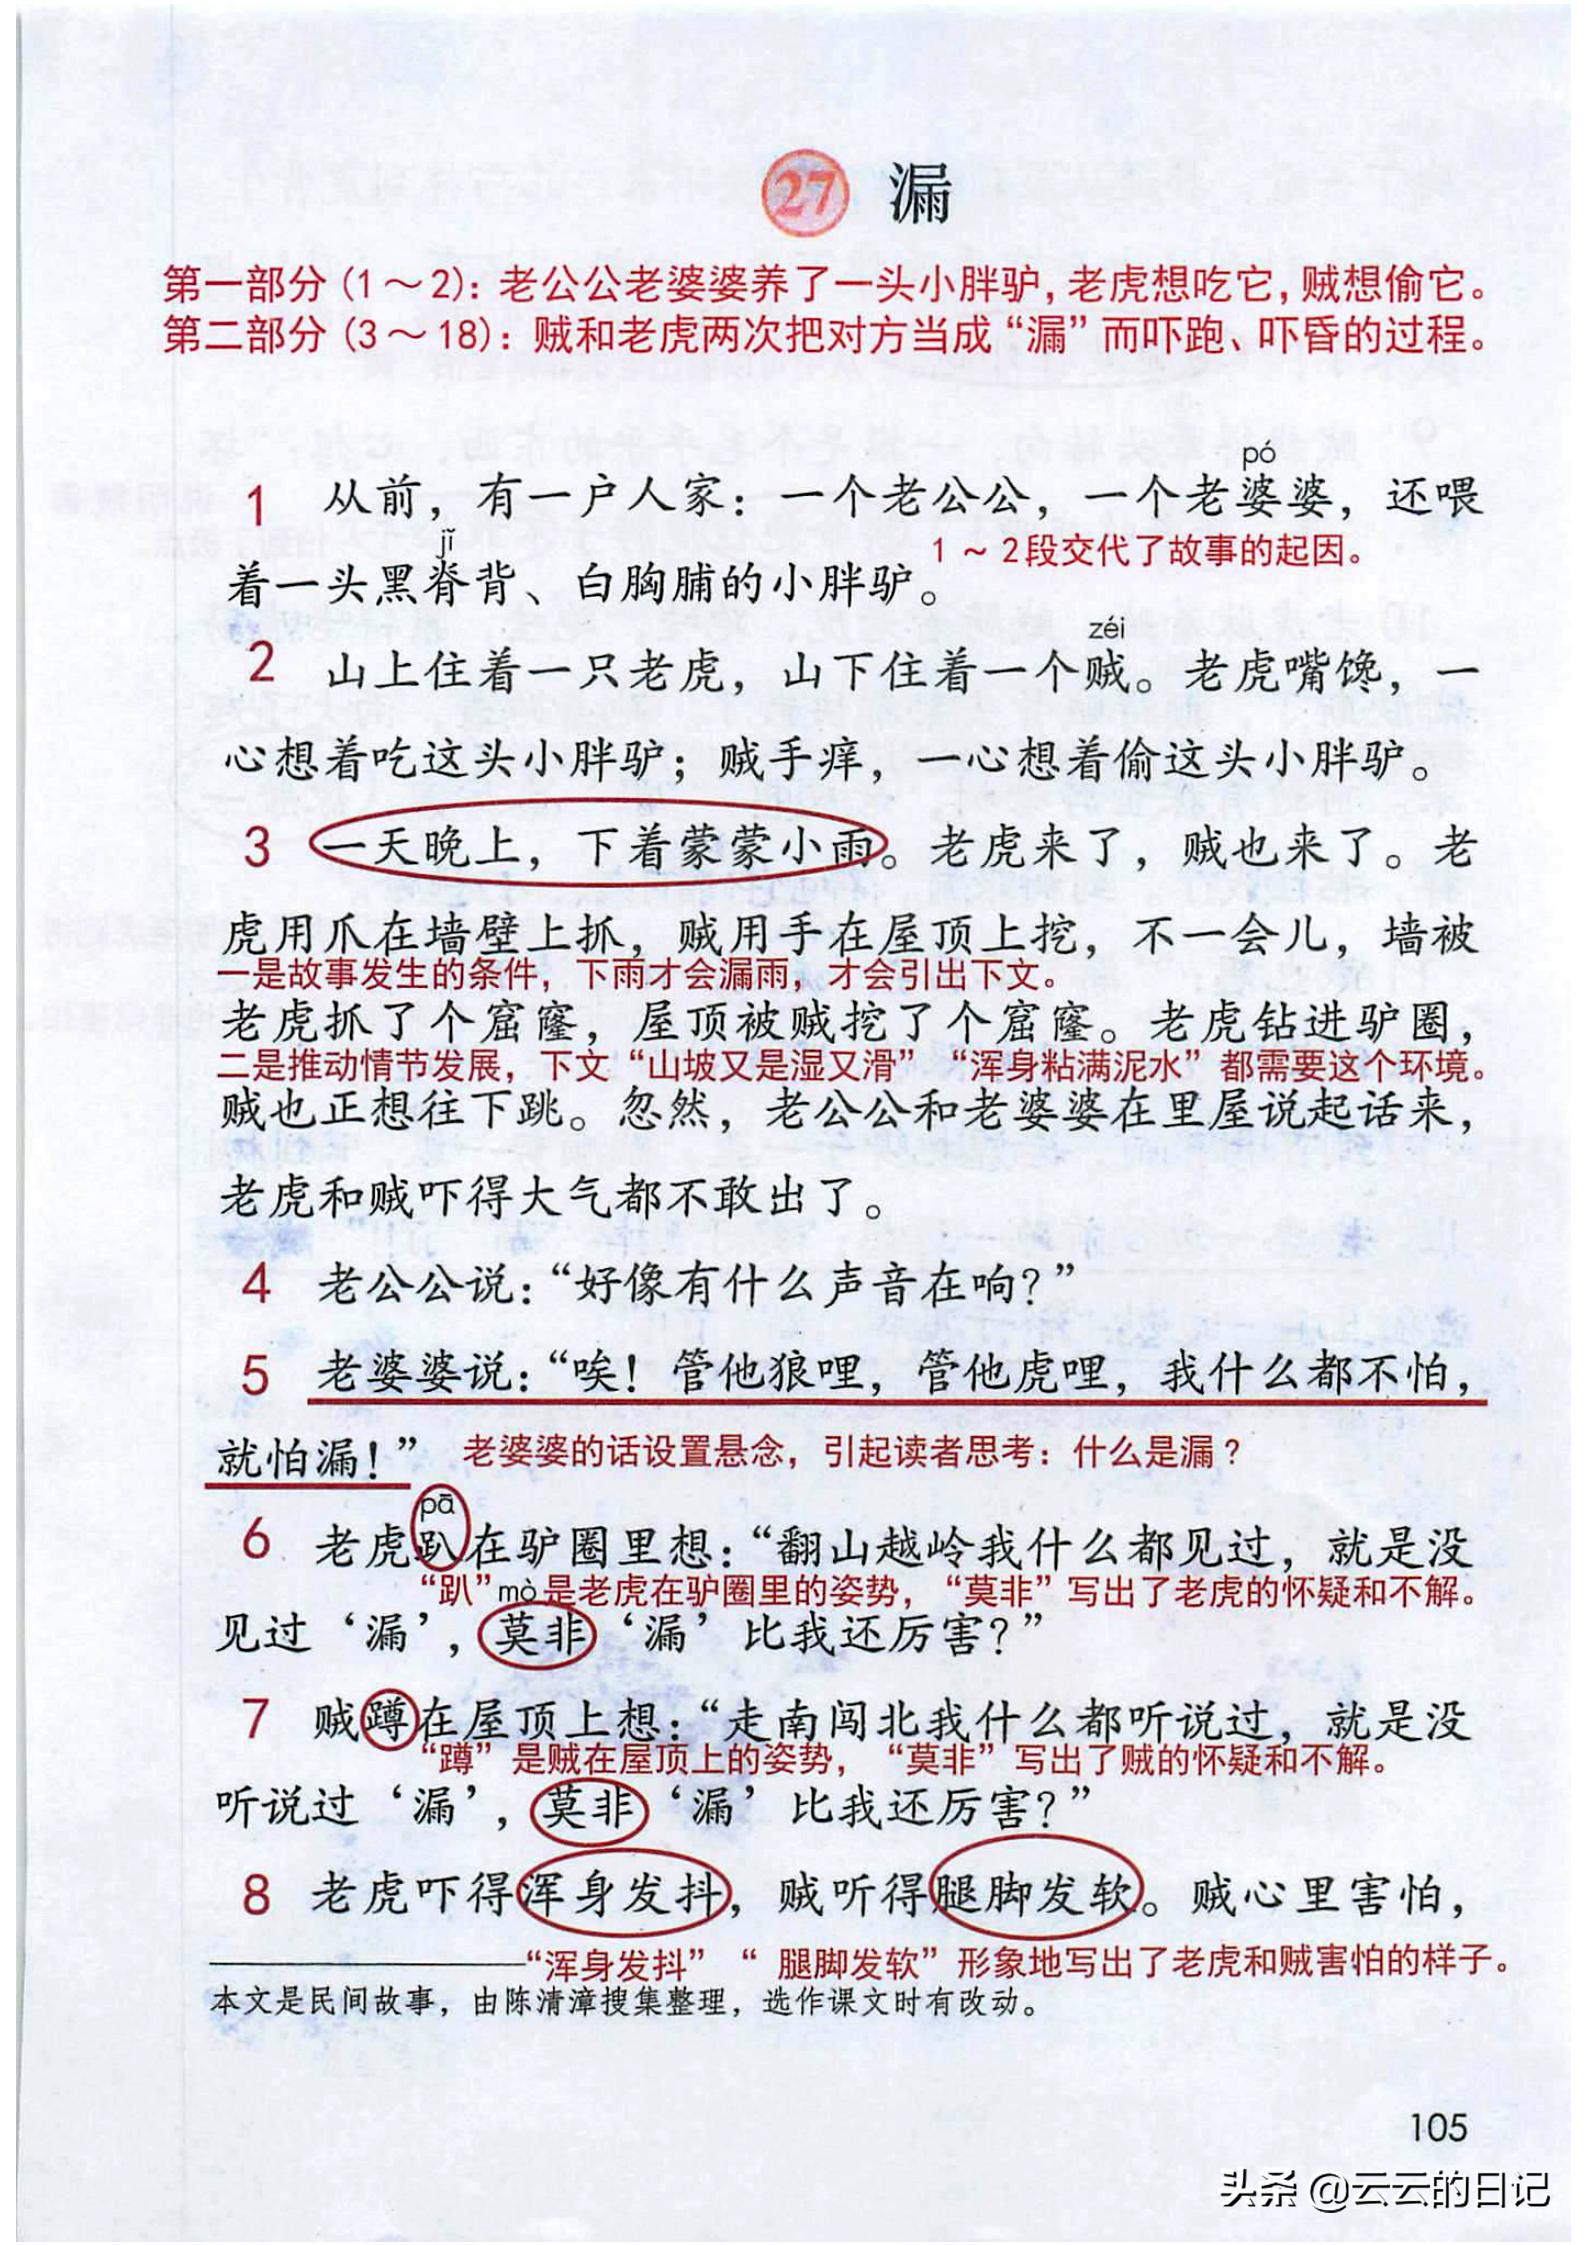 27 漏
第一部分（1～2）：老公公老婆婆养了一头小胖驴，老虎想吃它，贼想偷它。
第二部分（3～18）：贼和老虎两次把对方当成“漏”而吓跑、吓昏的过程。
pó
1 从前，有一户人家：一个老公公，一个老婆婆，还喂
jǐ
1～2段交代了故事的起因。
着一头黑脊背、白胸脯的小胖驴。
zéi
2 山上住着一只老虎，山下住着一个贼。老虎嘴馋，一
心想着吃这头小胖驴；贼手痒，一心想着偷这头小胖驴。
3 一天晚上，下着蒙蒙小雨。老虎来了，贼也来了。老
虎用爪在墙壁上抓，贼用手在屋顶上挖，不一会儿，墙被
一是故事发生的条件，下雨才会漏雨，才会引出下文。
老虎抓了个窟窿，屋顶被贼挖了个窟窿。老虎钻进驴圈，
二是推动情节发展，下文“山坡又是湿又滑”“浑身粘满泥水”都需要这个环境。
贼也正想往下跳。忽然，老公公和老婆婆在里屋说起话来，
老虎和贼吓得大气都不敢出了。
4 老公公说：“好像有什么声音在响？”
5 老婆婆说：“唉！管他狼哩，管他虎哩，我什么都不怕，
就怕漏！” 老婆婆的话设置悬念，引起读者思考：什么是漏？
pā
6 老虎趴在驴圈里想：“翻山越岭我什么都见过，就是没
“趴”mò是老虎在驴圈里的姿势，“莫非”写出了老虎的怀疑和不解。
见过‘漏’，莫非‘漏’比我还厉害？”
7 贼蹲在屋顶上想：“走南闯北我什么都听说过，就是没
“蹲”是贼在屋顶上的姿势，“莫非”写出了贼的怀疑和不解。
听说过‘漏’，莫非‘漏’比我还厉害？”
8 老虎吓得浑身发抖，贼听得腿脚发软。贼心里害怕，
“浑身发抖”“腿脚发软”形象地写出了老虎和贼害怕的样子。
本文是民间故事，由陈清漳搜集整理，选作课文时有改动。
105
头条 @云云的日记